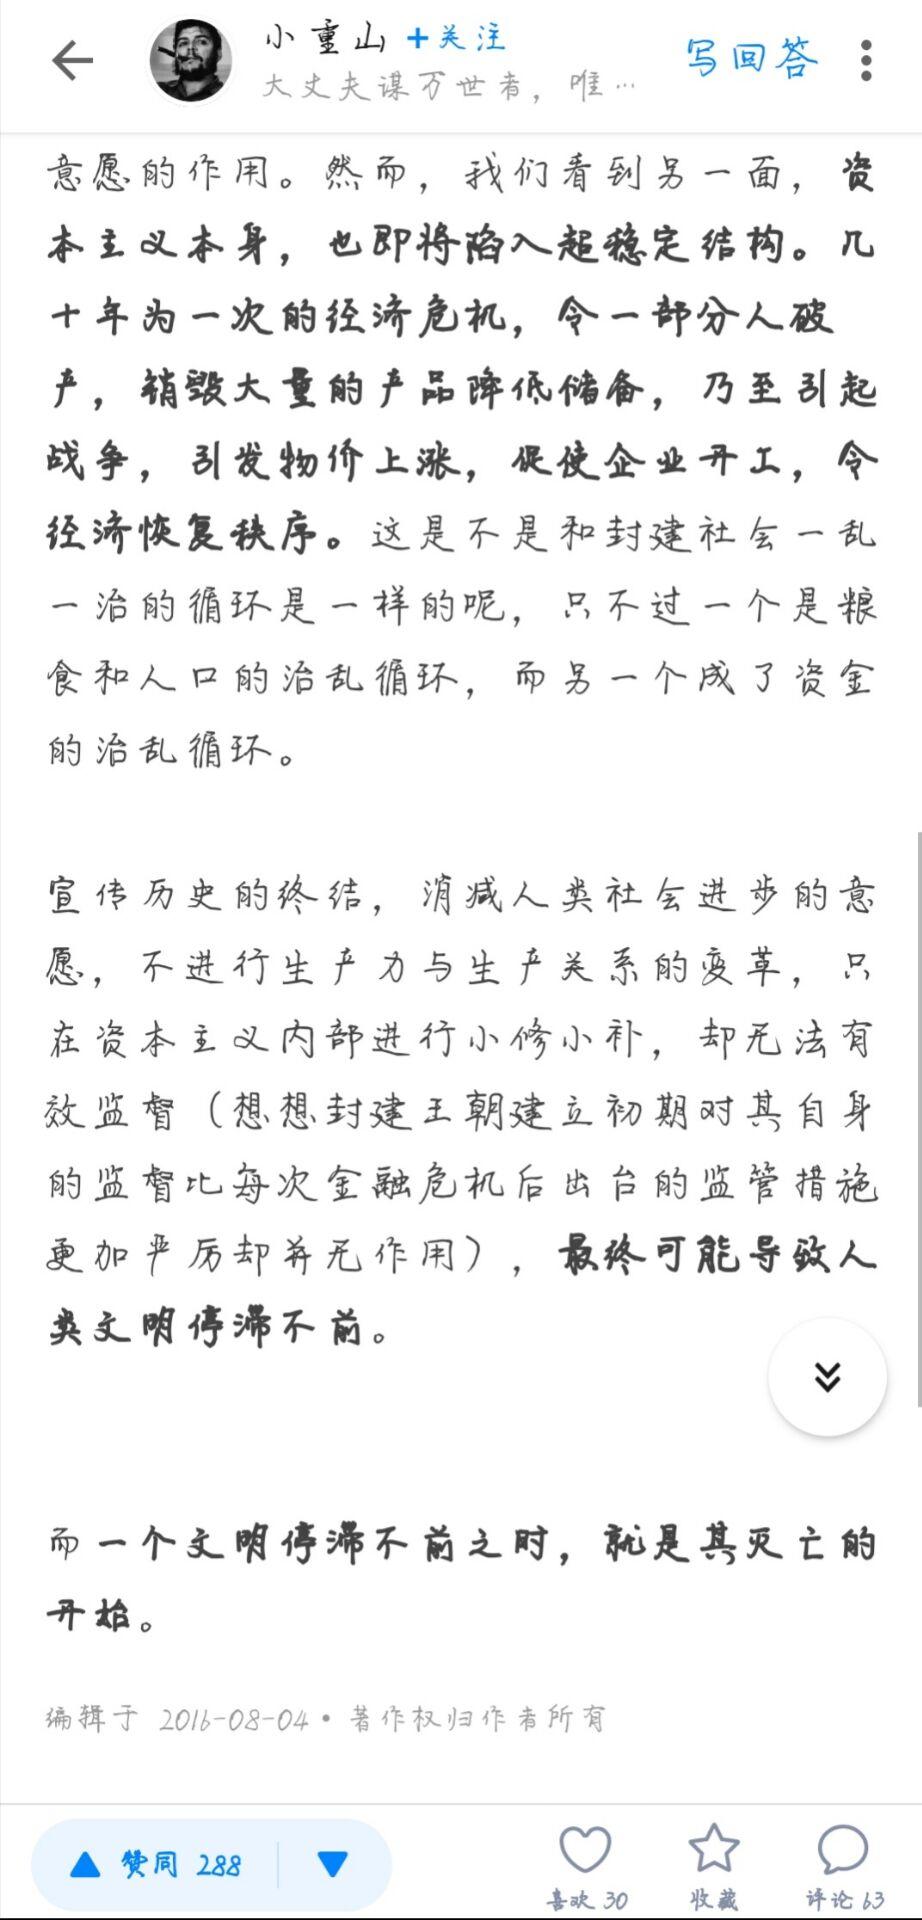 小重山 +关注
写回答
大丈夫谋万世者，唯…
意愿的作用。然而，我们看到另一面，资
本主义本身，也即将陷入超稳定结构。几
十年为一次的经济危机，令一部分人破
产，销毁大量的产品降低储备，乃至引起
战争，引发物价上涨，促使企业开工，令
经济恢复秩序。这是不是和封建社会一乱
一治的循环是一样的呢，只不过一个是粮
食和人口的治乱循环，而另一个成了资金
的治乱循环。
宣传历史的终结，消减人类社会进步的意
愿，不进行生产力与生产关系的变革，只
在资本主义内部进行小修小补，却无法有
效监督（想想封建王朝建立初期对其自身
的监督比每次金融危机后出台的监管措施
更加严厉却并无作用），最终可能导致人
类文明停滞不前。
而一个文明停滞不前之时，就是其灭亡的
开始。
编辑于 2016-08-04 · 著作权归作者所有
赞同 288
喜欢 30
收藏
评论 63